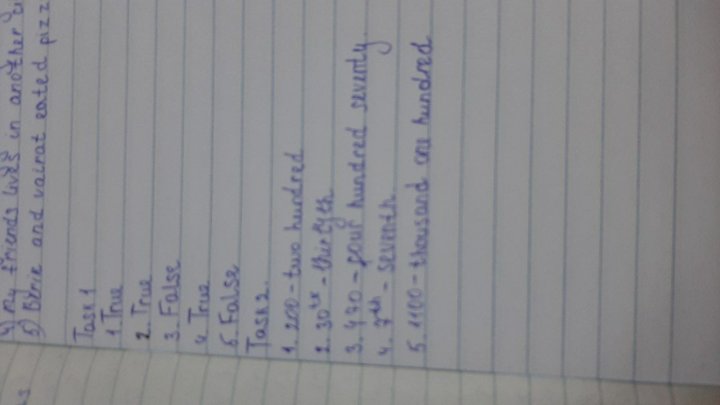 4) My friends lives in another
5) and vainat eated pizz
Task 1
1. True
2. True
3. False
4. True
5. False
Task 2
1. 200 - two hundred
2. 30 - thirtyth
3. 470 - four hundred seventy
4. 7th - seventh
5. 1100 - thousand one hundred